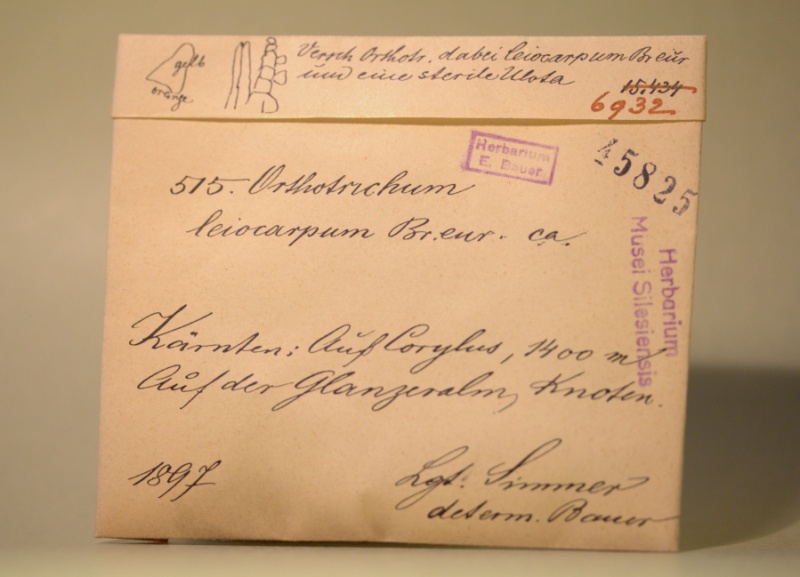 gelb
orange
Versch Orthotr. dabei leiocarpum Br eur
und eine sterile Ulota
15.434
6932
Herbarium
E. Bauer
45825
515. Orthotrichum
leiocarpum Br. eur. ca.
Herbarium
Musei Silesiensis
Kärnten: Auf Corylus, 1400 m
Auf der Glanzeralm, Knoten.
1897
Lgt. Simmer
determ. Bauer